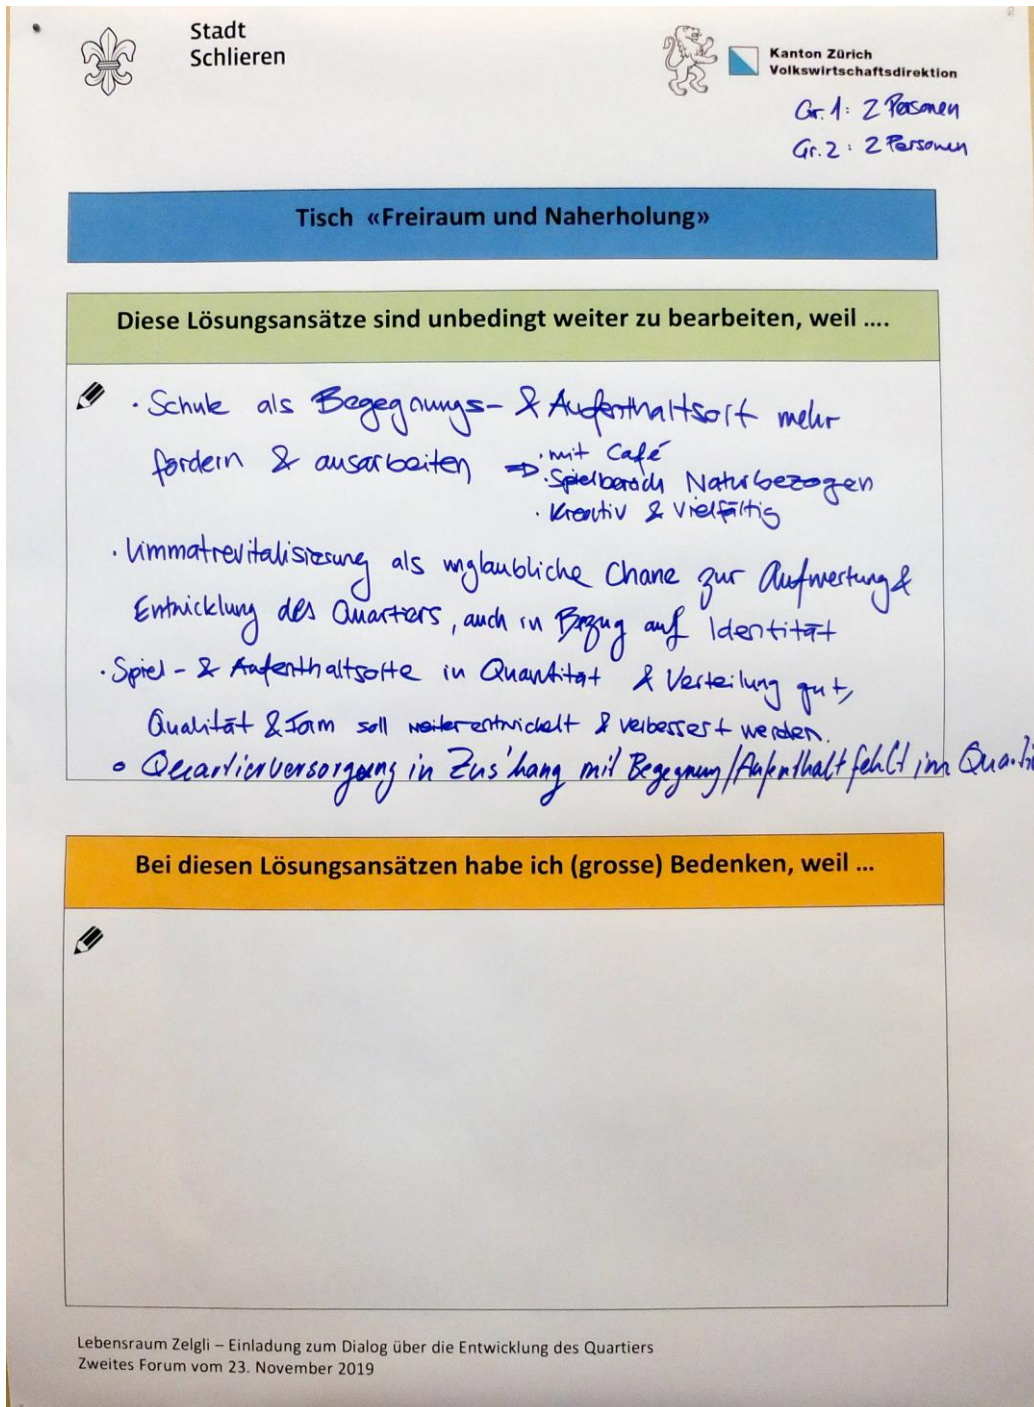 Stadt
Schlieren
Kanton Zürich
Volkswirtschaftsdirektion
Gr. 1: 2 Personen
Gr. 2: 2 Personen
Tisch «Freiraum und Naherholung»
Diese Lösungsansätze sind unbedingt weiter zu bearbeiten, weil ....
· Schule als Begegnungs- & Aufenthaltsort mehr
fördern & ausarbeiten ⇒ · mit Café
· Spielbereich Naturbezogen
· Kreativ & Vielfältig
· Limmatrevitalisierung als unglaubliche Chane zur Aufwertung &
Entwicklung des Quartiers, auch in Bezug auf Identität
· Spiel- & Aufenthaltsorte in Quantität & Verteilung gut,
Qualität & Form soll weiterentwickelt & verbessert werden.
o Quartierversorgung in Zus'hang mit Begegnung/Aufenthalt fehlt im Quarti
Bei diesen Lösungsansätzen habe ich (grosse) Bedenken, weil ...
Lebensraum Zelgli – Einladung zum Dialog über die Entwicklung des Quartiers
Zweites Forum vom 23. November 2019